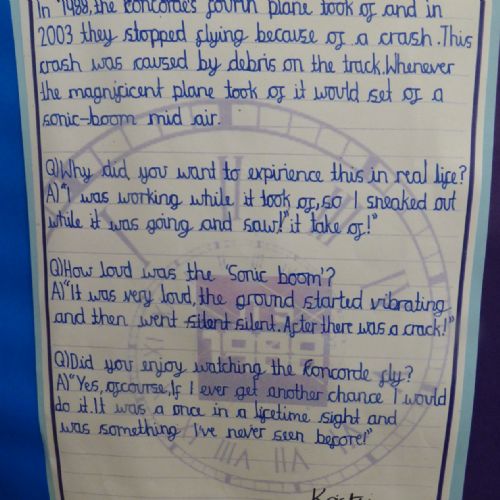 In "1988, the Koncorde's fourth plane took of and in
2003 they stopped flying because of a crash. This
crash was caused by debris on the track. Whenever
the magnificent plane took of it would set of a
sonic-boom mid air.
Q) Why did you want to expirience this in real life?
A) "I was working while it took of, so I sneaked out
while it was going and saw! "it take of!"
Q) How loud was the 'Sonic boom'?
A) "It was very loud, the ground started vibrating
and then went silent silent. After there was a crack!"
Q) Did you enjoy watching the Koncorde fly?
A) "Yes, ofcourse, If I ever get another chance I would
do it. It was a once in a lifetime sight and
was something I've never seen before!"